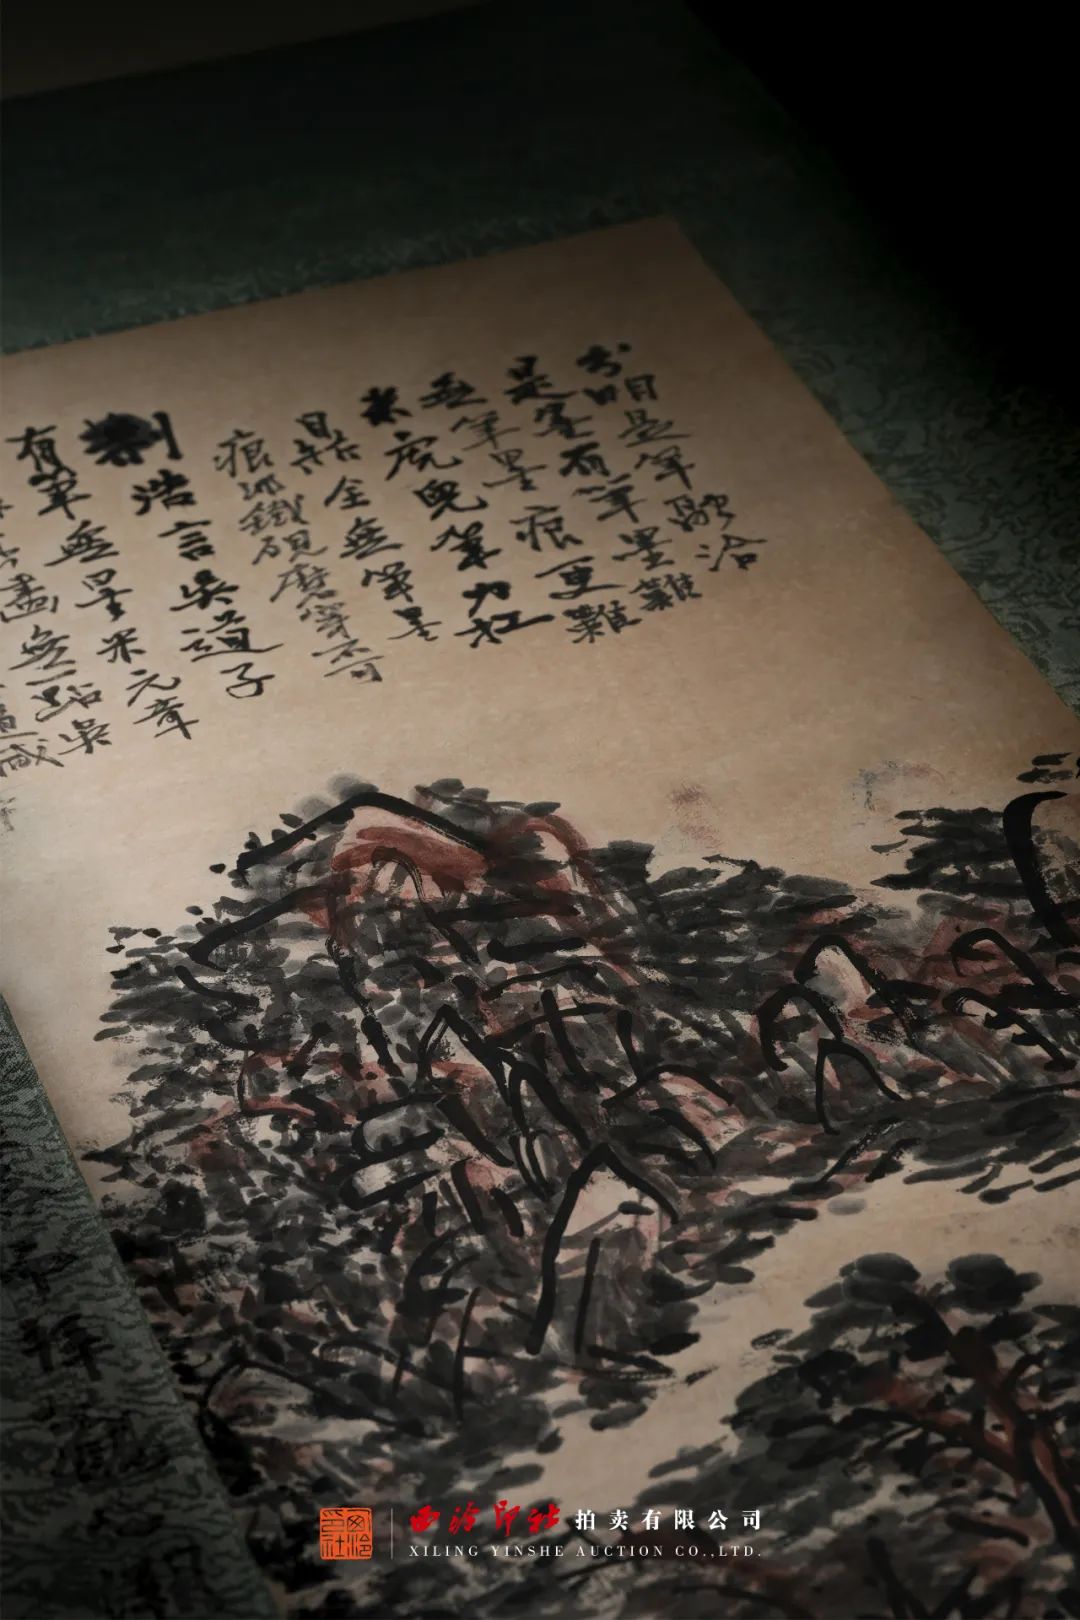 分明是筆融洽
是墨有筆墨難
無筆墨痕更難
米虎兒筆力扛
鼎全無筆墨
痕非鐵硯磨穿不可
荊浩言吳道子
有筆無墨米元章
畫無一點吳
西泠印社
西泠印社拍卖有限公司
XILING YINSHE AUCTION CO.,LTD.